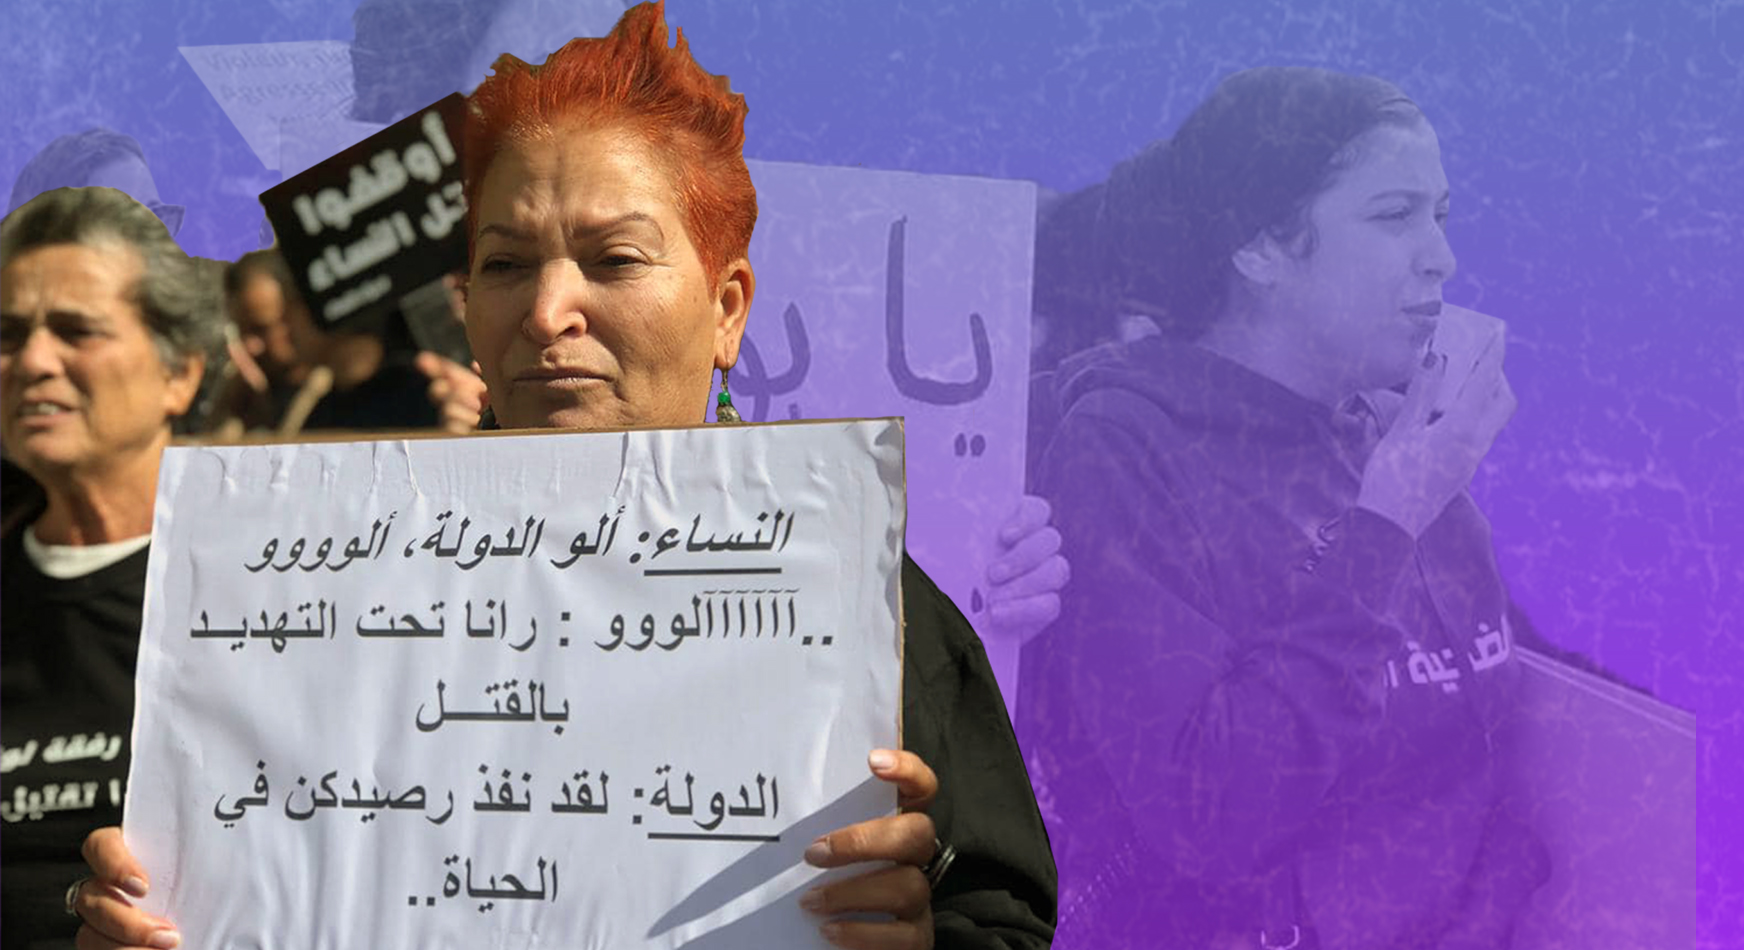 أوقفوا
تل النساء
يا بو
النساء: ألو الدولة، ألوووو
..آآآآآآلووو : رانا تحت التهديـد
بالقتــل
الدولة: لقد نفذ رصيدكن في
الحياة..
رفقة لو
ا تقتيل